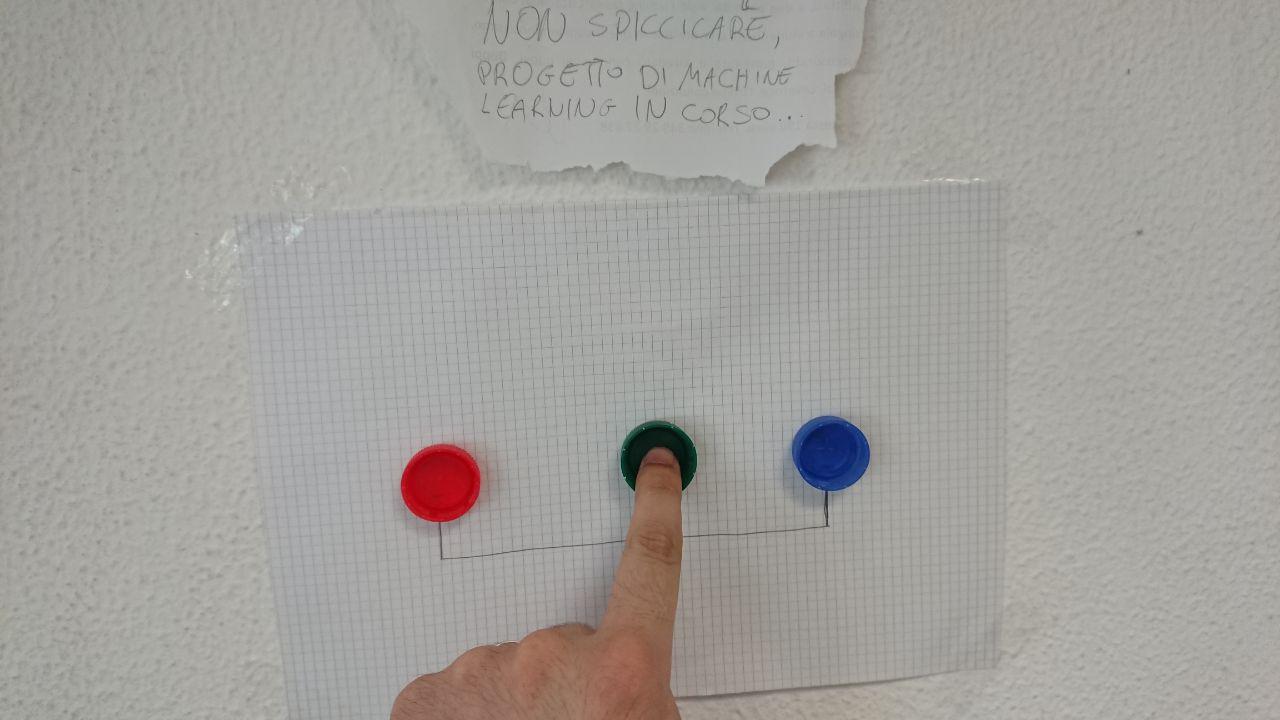 NON SPICCICARE,
PROGETTO DI MACHINE
LEARNING IN CORSO...